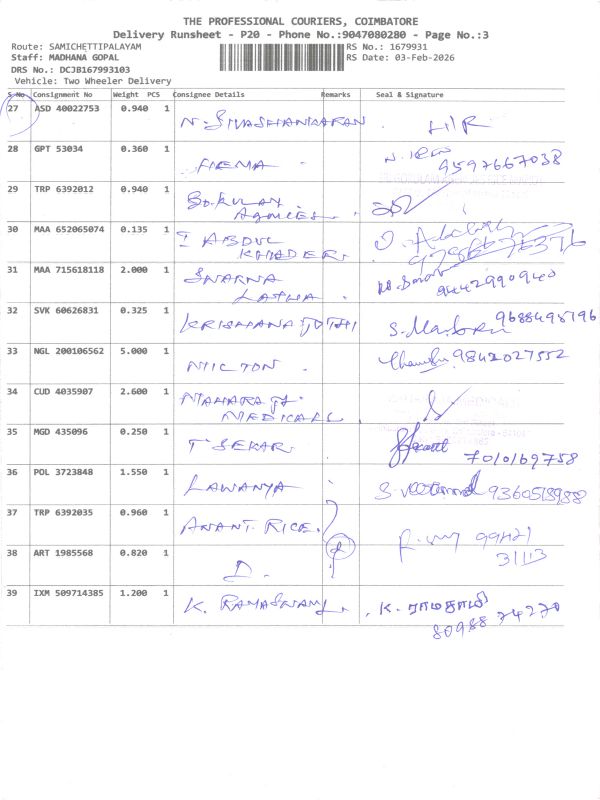 THE PROFESSIONAL COURIERS, COIMBATORE
Delivery Runsheet - P20 - Phone No.:9047080280 - Page No.:3
Route: SAMICHETTIPALAYAM
RS No.: 1679931
Staff: MADHANA GOPAL
RS Date: 03-Feb-2026
DRS No.: DCJB167993103
Vehicle: Two Wheeler Delivery
S.No Consignment No Weight PCS Consignee Details Remarks Seal & Signature
27 ASD 40022753 0.940 1 N. SIVASHANKARAN
28 GPT 53034 0.360 1 HEMA 9597667038
29 TRP 6392012 0.940 1 GOKULAN
AGENCIES
30 MAA 652065074 0.135 1 I ABDUL
KHADER
31 MAA 715618118 2.000 1 SWARNA
LATHA 9442990940
32 SVK 60626831 0.325 1 KRISHANA JOTHI 9688498796
33 NGL 200106562 5.000 1 NICTON 9842027552
34 CUD 4035907 2.600 1 MAHARAJA
MEDICALL
35 MGD 435096 0.250 1 T SEKAR 7010169758
36 POL 3723848 1.550 1 LAWANYA
37 TRP 6392035 0.960 1 ANANT RICE
38 ART 1985568 0.820 1 D. 31113
39 IXM 509714385 1.200 1 K. RAMASWAMY K. ராமசாமி
80988 74270